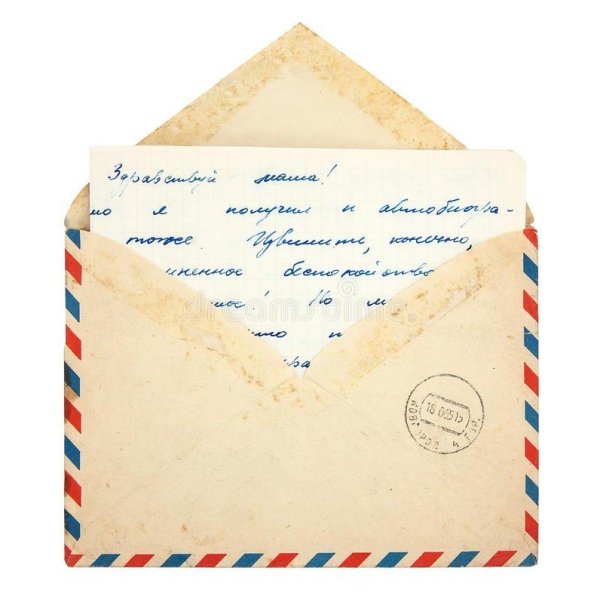 Здравствуй мама!
но я получил и автобиогра-
тоже. Извините, конечно,
иненное беспокойство
! Но м
мо и
ра
dreamstime
18 0651